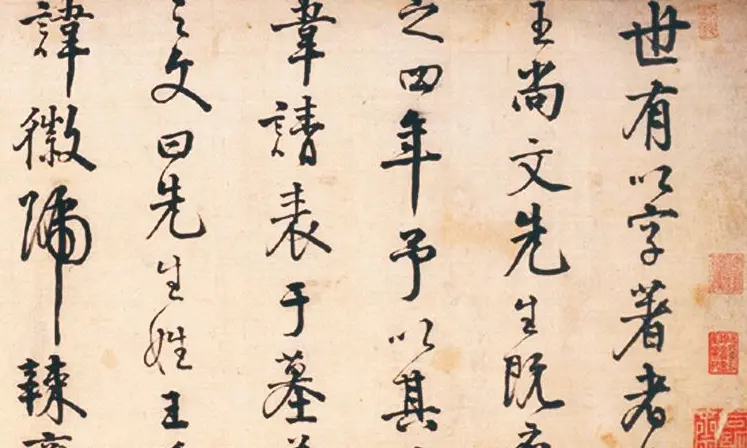 世有以字著者
王尚文先生既
之四年予以其
韋請表于墓
之文曰先生姓王
諱徽